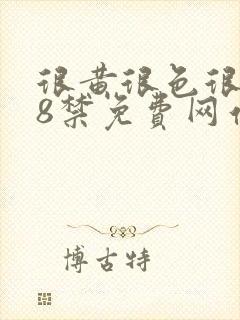 很黄很色很
8禁免费网
博古特